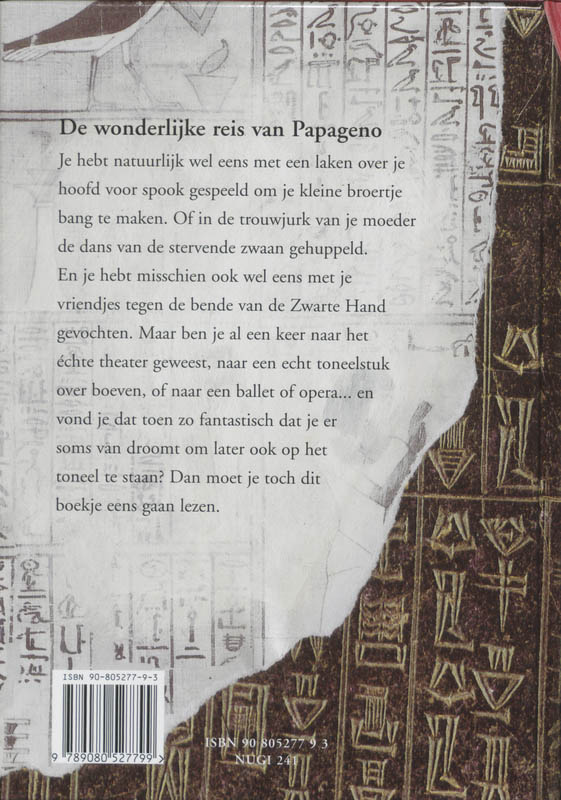 De wonderlijke reis van Papageno
Je hebt natuurlijk wel eens met een laken over je
hoofd voor spook gespeeld om je kleine broertje
bang te maken. Of in de trouwjurk van je moeder
de dans van de stervende zwaan gehuppeld.
En je hebt misschien ook wel eens met je
vriendjes tegen de bende van de Zwarte Hand
gevochten. Maar ben je al een keer naar het
échte theater geweest, naar een echt toneelstuk
over boeven, of naar een ballet of opera... en
vond je dat toen zo fantastisch dat je er
soms van droomt om later ook op het
toneel te staan? Dan moet je toch dit
boekje eens gaan lezen.
ISBN 90-805277-9-3
9 789080 527799 >
ISBN 90 805277 9 3
NUGI 241